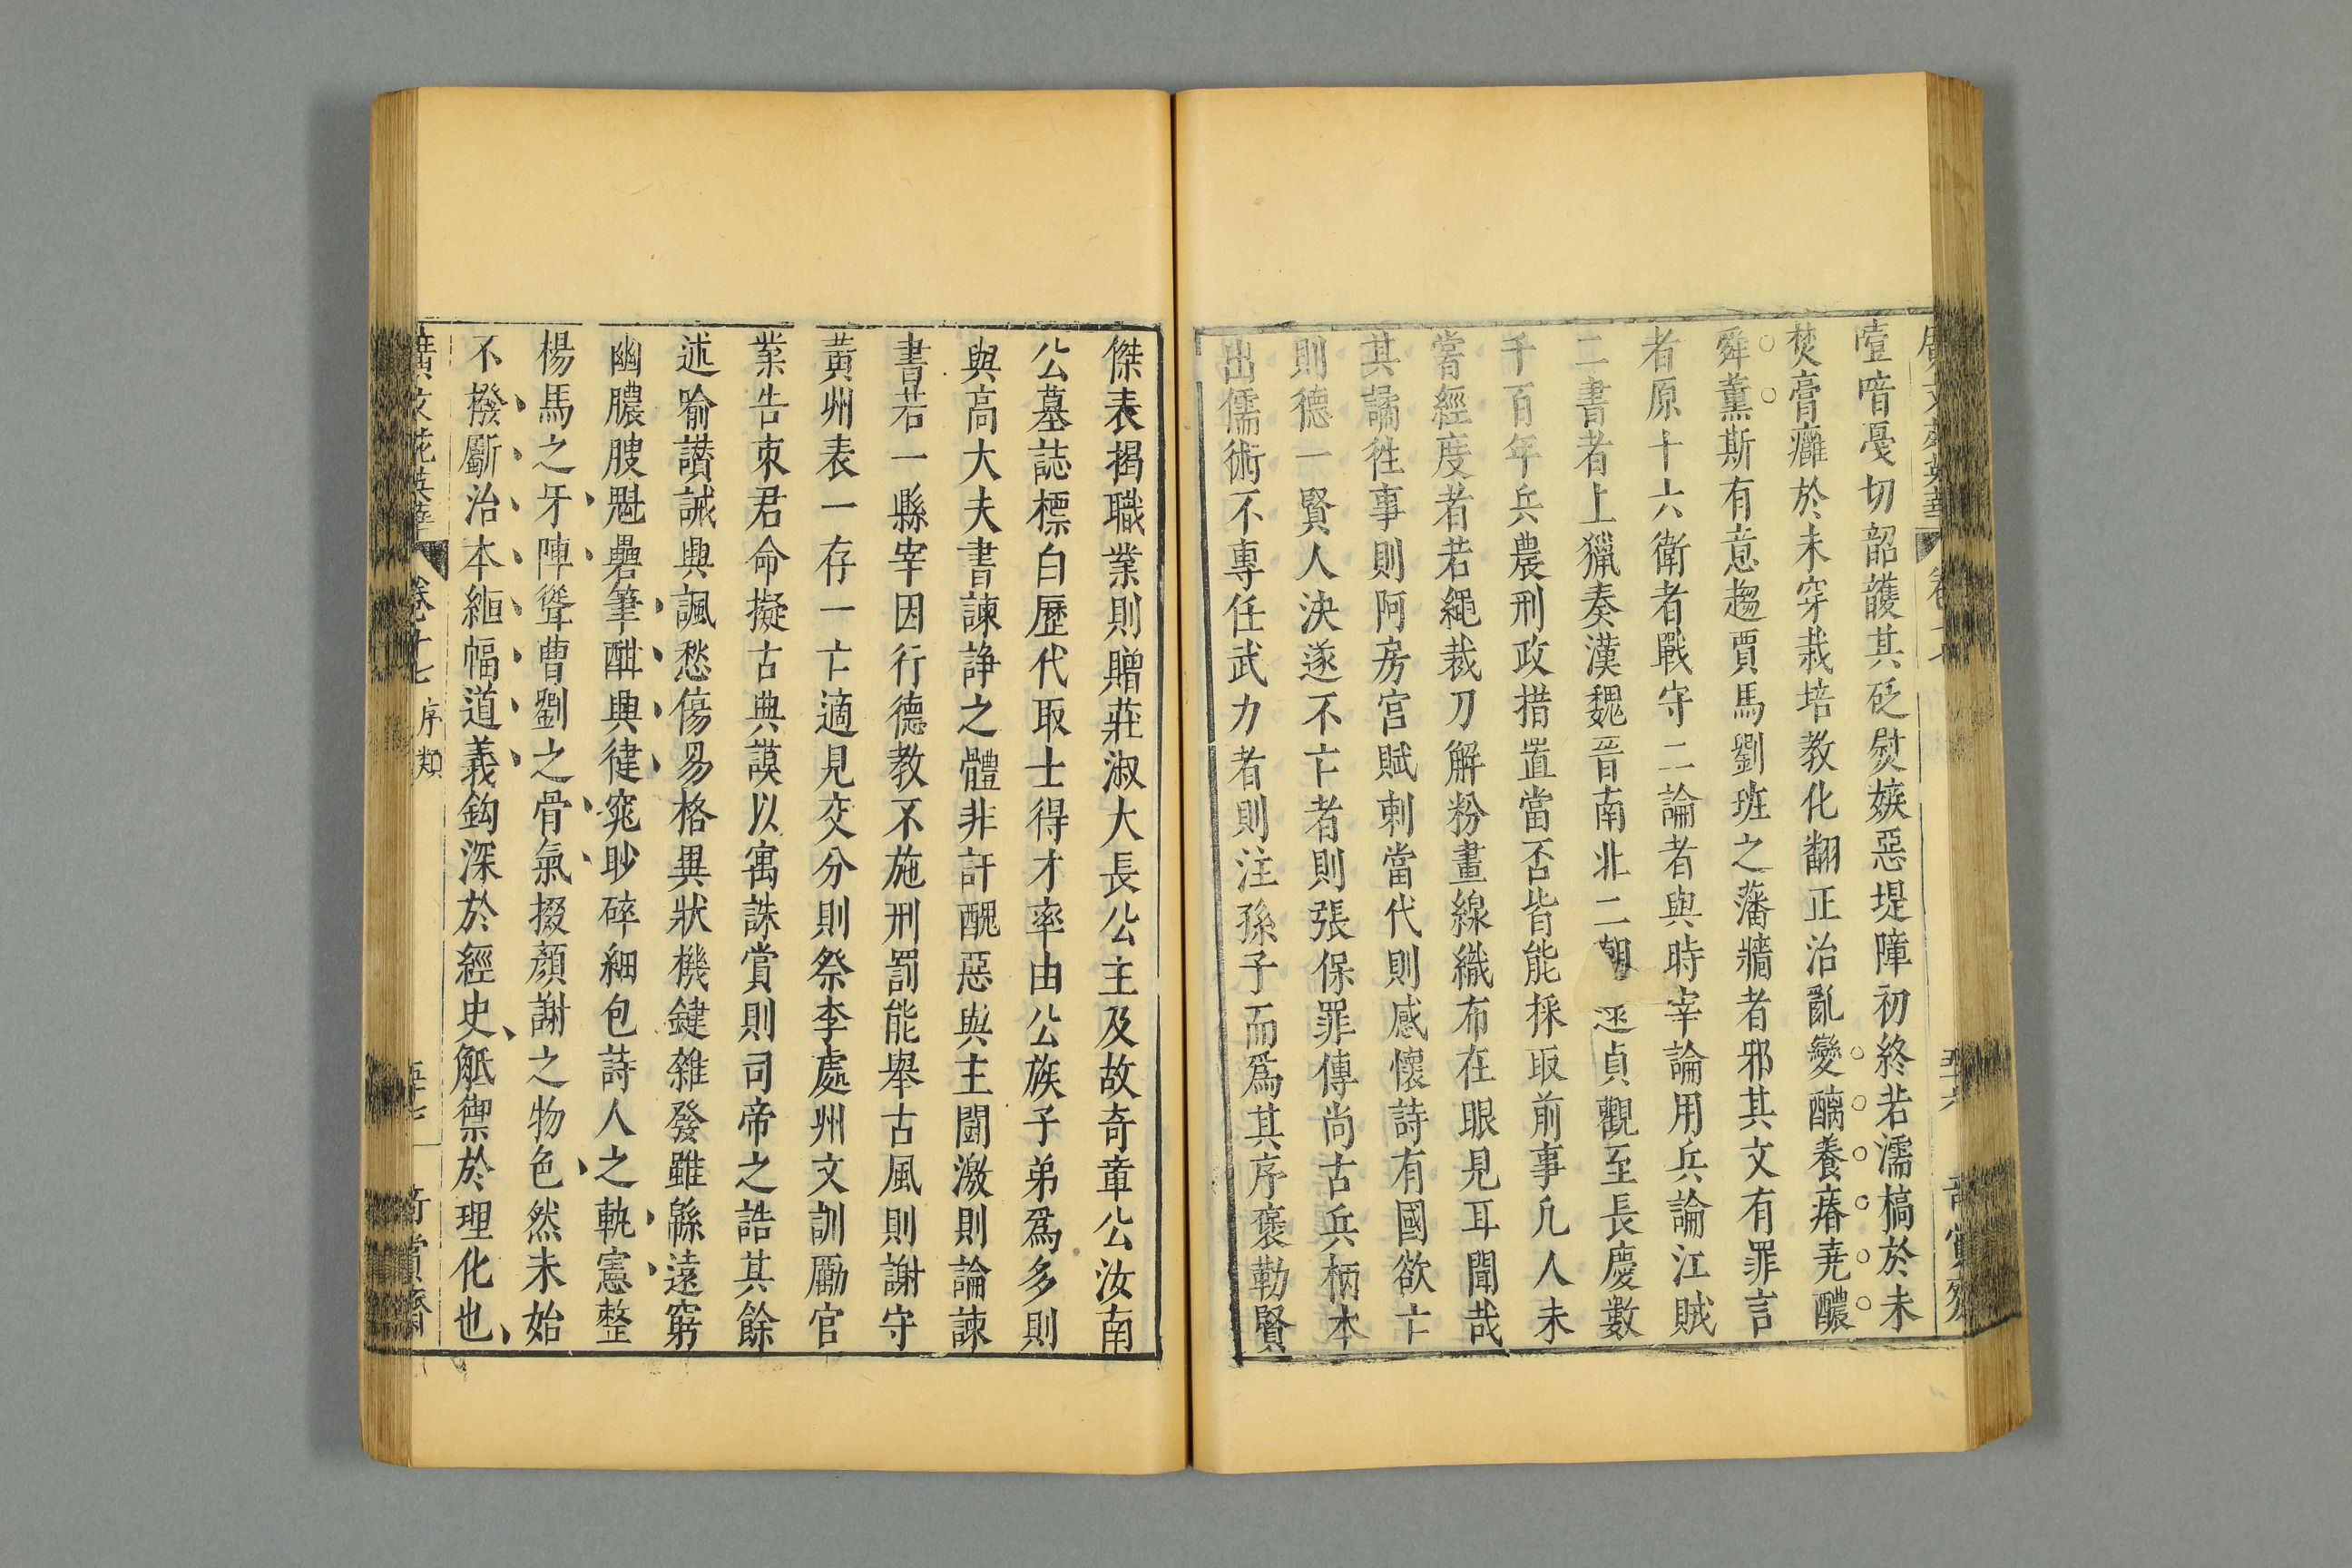 噎喑戞切韶護其砭熨嫉惡堤障初終若濡槁於未
焚膏癰於未穿栽培教化翻正治亂變醨養瘠堯醲
舜薰斯有意趨賈馬劉班之藩牆者邪其文有罪言
者原十六衛者戰守二論者與時宰論用兵論江賊
二書者上獵秦漢魏晉南北二朝逮貞觀至長慶數
千百年兵農刑政措置當否皆能採取前事凡人未
嘗經度者若繩裁刀解粉畫線織布在眼見耳聞哉
其譎徃事則阿房宮賦刺當代則感懷詩有國欲亡
則德一賢人決遂不亡者則張保罪傳尚古兵柄本
出儒術不專任武力者則注孫子而爲其序褒勒賢
傑表揭職業則贈莊淑大長公主及故奇章公汝南
公墓誌標白歷代取士得才率由公族子弟爲多則
與高大夫書諫諍之體非訐醜惡與主鬬激則論諫
書若一縣宰因行德教不施刑罰能舉古風則謝守
黃州表一存一亡適見交分則祭李處州文訓勵官
業告束君命擬古典謨以寓誅賞則司帝之誥其餘
述喻讃誡興諷愁傷易格異狀機鍵雜發雖緜遠窮
幽膿腴魁礨筆酣興徤窕眇碎細包詩人之軌憲整
楊馬之牙陣聳曹劉之骨氣掇顏謝之物色然未始
不撥斸治本縆幅道義鈎深於經史觝禦於理化也
廣文苑英華 卷十七 序類 五十七 奇賞齋